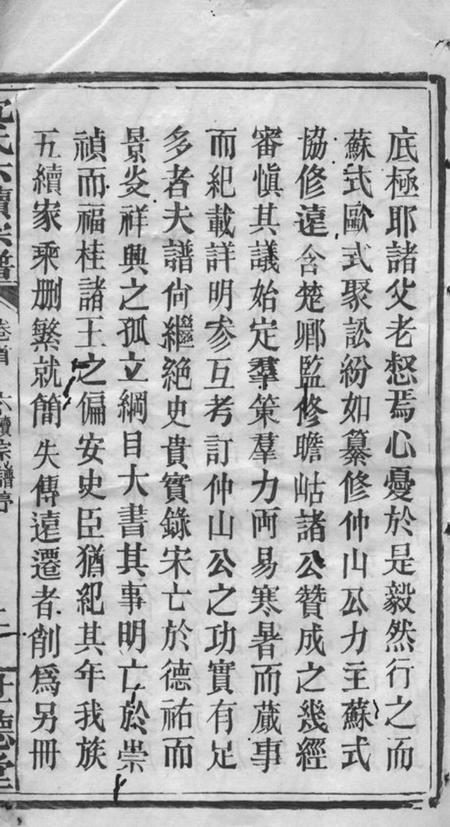 底極耶諸父老惄焉心憂於是毅然行之而
蘇式歐式聚訟紛如纂修仲山公力主蘇式
協修遠含楚卿監修瞻岵諸公贊成之幾經
審慎其議始定羣策羣力兩易寒暑而蕆事
而紀載詳明參互考訂仲山公之功實有足
多者夫譜尙繼絕史貴實錄宋亡於德祐而
景炎祥興之孤立綱目大書其事明亡於崇
禎而福桂諸王之偏安史臣猶紀其年我族
五續家乘删繁就簡失傳遠遷者削爲另冊
氏六續宗譜 卷首 六續宗譜序